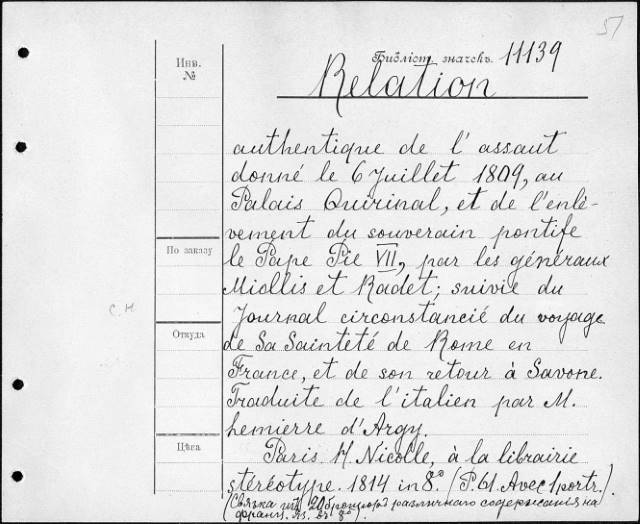 51
Библіот. значекъ. 11139
Инв.
№
Relation
authentique de l'assaut
donné le 6 Juillet 1809, au
Palais Quirinal, et de l'enlè-
vement du souverain pontife
По заказу
le Pape Pie VII, par les généraux
Miollis et Radet; suivie du
С. Н
Journal circonstancié du voyage
Откуда
de Sa Sainteté de Rome en
France, et de son retour à Savone.
Traduite de l'italien par M.
hemierre d'Argy.
Цѣна
Paris. H. Nicolle, à la librairie
stéréotype. 1814 in 8.° (P. 61. Avec 1 portr.)
(Связка изъ 20 брошюръ различнаго содержанія на
франц. яз. въ 8°).